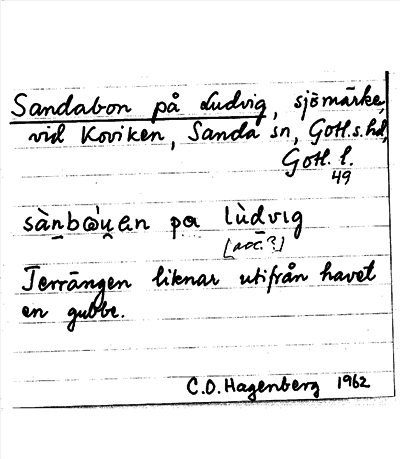 Sandabon på Ludvig, sjömärke,
vid Koviken, Sanda sn, Gotl. s. hd,
Gotl. l.
49
sànbòu̯en pa lùdvıg
[acc.?]
Terrängen liknar utifrån havet
en gubbe.
C.O. Hagenberg 1962